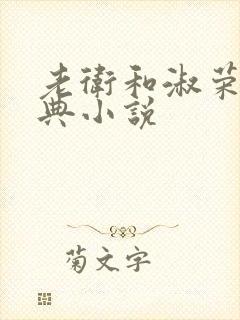 老衛和淑荣
典小説
菊文字